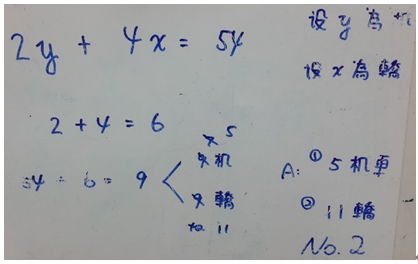 2y + 4x = 54
设 y 為机
设 x 為轎
2 + 4 = 6
54 ÷ 6 = 9
5
9 机
9 轎
11
A: ① 5 机車
② 11 轎
No. 2